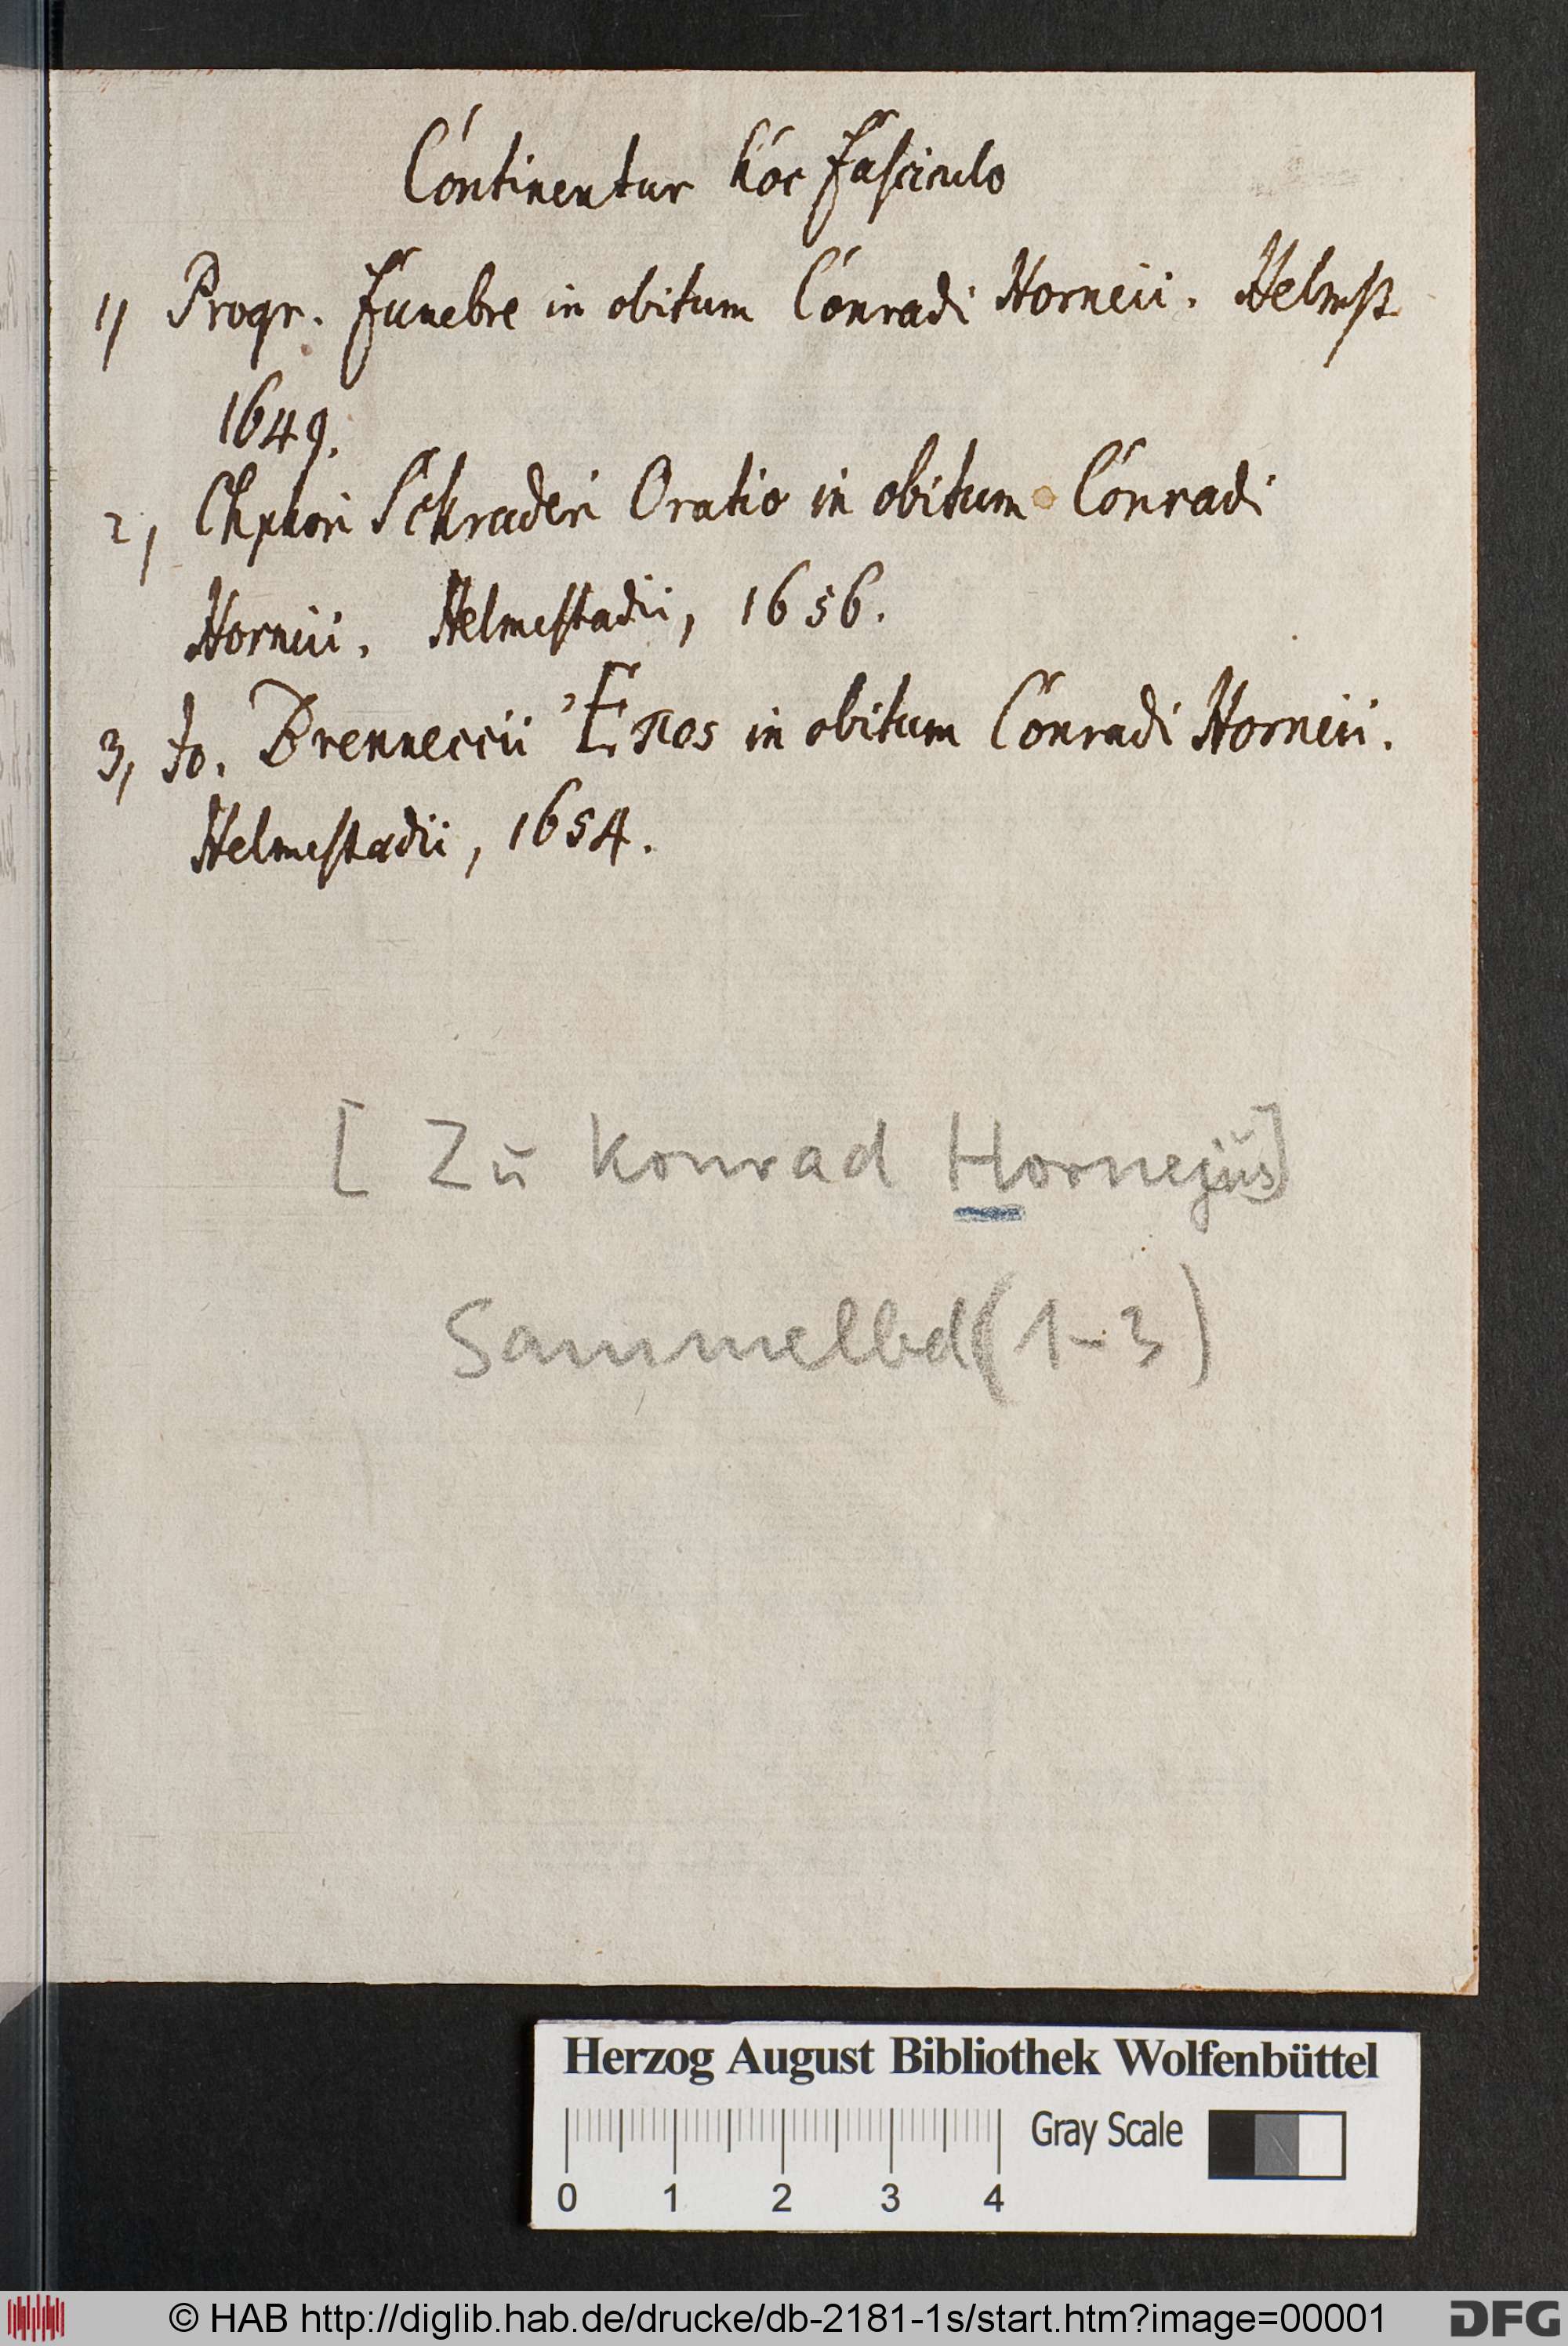 Continentur hoc fasciculo
1) Progr. funebre in obitum Conradi Horneii. Helmst.
1649.
2, Chphori Schraderi Oratio in obitum Conradi
Horneii. Helmestadii, 1656.
3, Jo. Brenneccii Ἔπος in obitum Conradi Horneii.
Helmestadii, 1654.
[Zu Konrad Hornejus]
Sammelbd (1-3)
Herzog August Bibliothek Wolfenbüttel
Gray Scale
0 1 2 3 4
© HAB http://diglib.hab.de/drucke/db-2181-1s/start.htm?image=00001
DFG